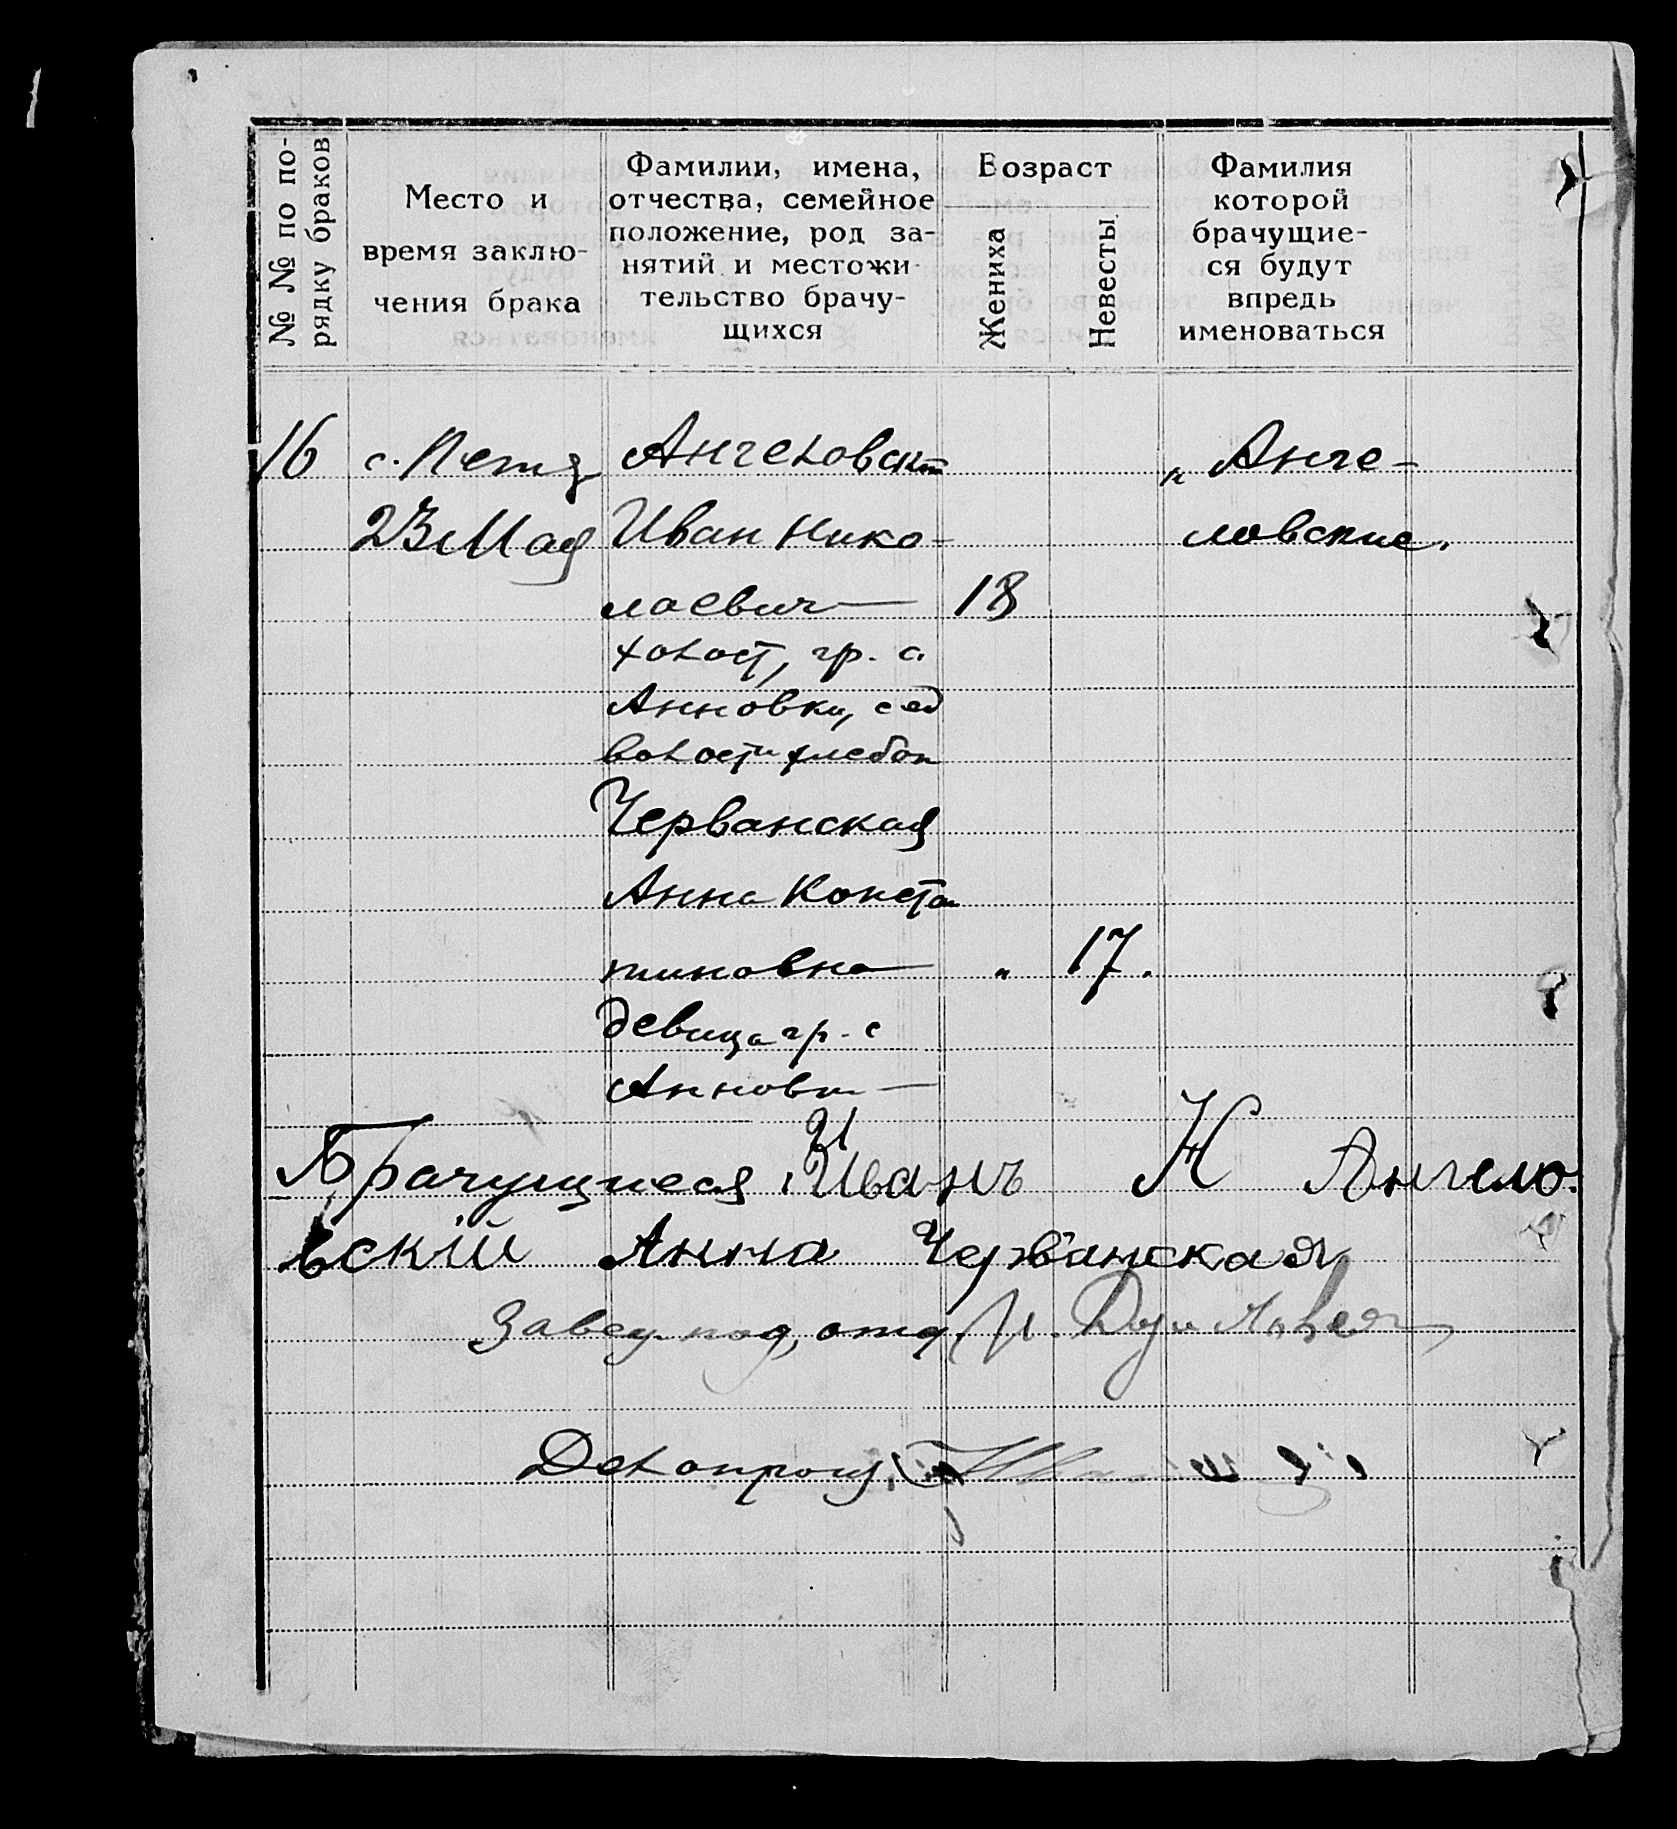 № № по по-
рядку браков
Место и
время заклю-
чения брака
Фамилии, имена,
отчества, семейное
положение, род за-
нятий и местожи-
тельство брачу-
щихся
Возраст
Жениха
Невесты
Фамилия
которой
брачущие-
ся будут
впредь
именоваться
16 с. Ангеловский „ Анге-
23 Мая Иван Нико- ловские.
лаевич — 18
холост, гр. с.
Анновки, сед
волости хлебоп
Черванская
АннаКонста
тиновна — „ 17.
девица гр. с
Анновки —
Брачущиеся Иванъ Н Ангело-
вскій Анна Черванская
Завед. под, отд. И.
Делопроиз.